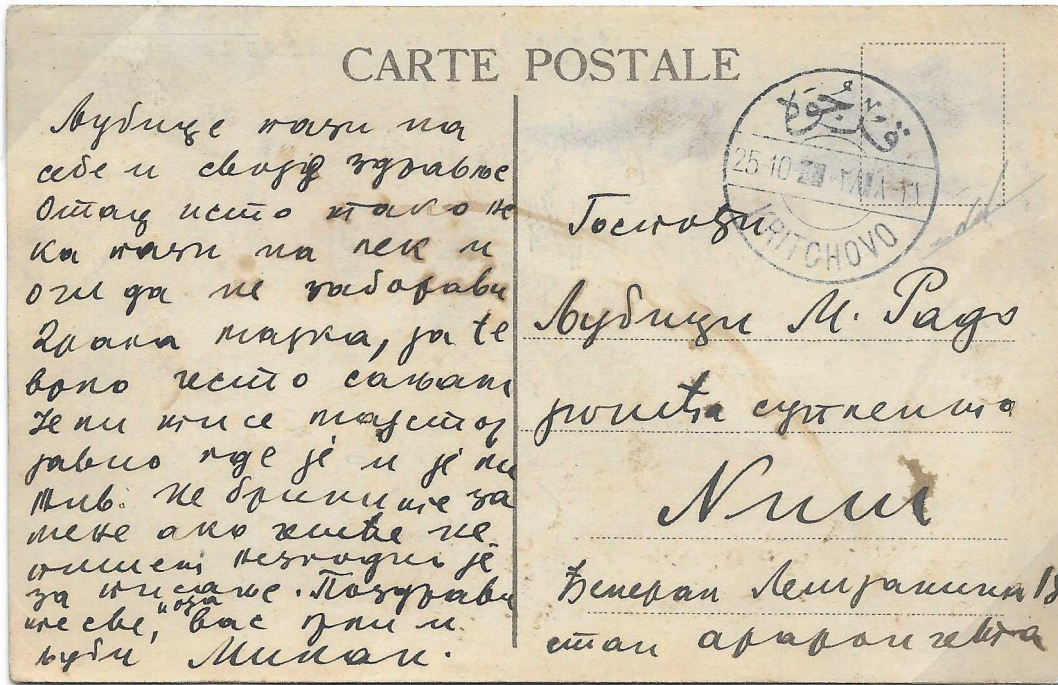 CARTE POSTALE
Љубице пази на
себе и своје здравље
Отац исто тако не
ка пази на лек и
очи да не заборави
Драга мајка, ја те
воло често сањам
Је ли ти се мајстор
јавио где је и је ли
жив. Не брините за
мене ако чешће не
пишем незгодно је
за писање. Поздрави
те све, Вас
љуби Милан.
25-10
KRITCHOVO
Госпођи
Љубици М. Радо
јковића
Ниш
Ђенерал Лешјанина
стан